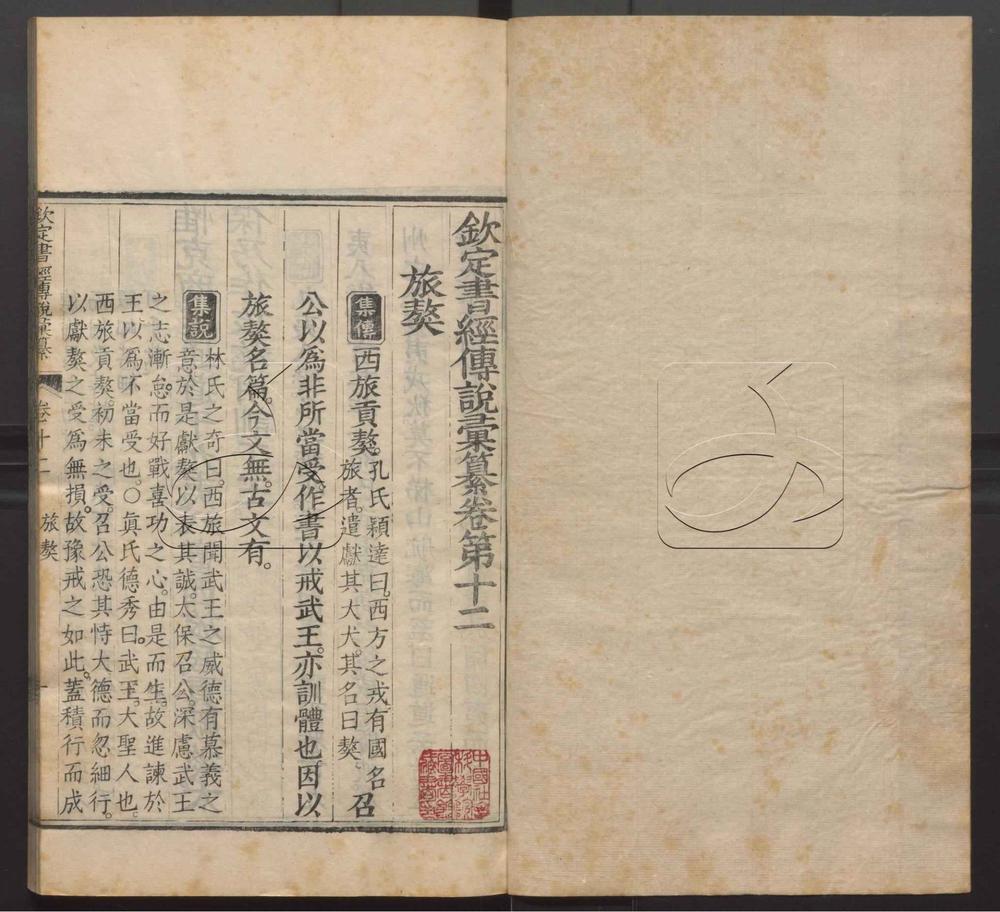 欽定書經傳說彙纂卷第十二
旅獒
集傳 西旅貢獒。孔氏穎達曰。西方之戎有國名
旅者。遣獻其大犬。其名曰獒。召
公以爲非所當受。作書以戒武王。亦訓體也。因以
旅獒名篇。今文無。古文有。
集說 林氏之奇曰。西旅聞武王之威德有慕義之
意於是獻獒以表其誠。太保召公。深慮武王
之志漸怠。而好戰喜功之心。由是而生。故進諫於
王以爲不當受也。○眞氏德秀曰。武王。大聖人也。
西旅貢獒。初未之受。召公恐其恃大德而忽細行。
以獻獒之受爲無損。故豫戒之如此。蓋積行而成
欽定書經傳說彙纂 卷十二 旅獒 一
中國社會科學院